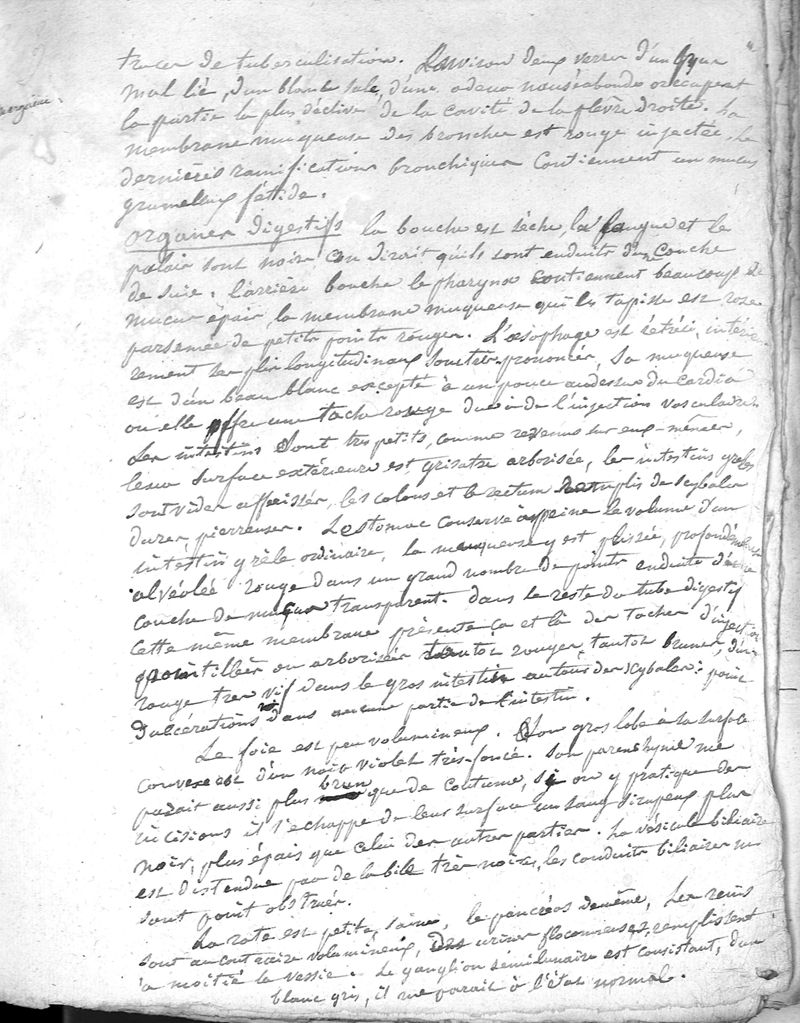 traces de tuberculisation. Environ deux verres d'un pus
mal lié, d'un blanc sale, d'une odeur nauséabonde occupent
la partie la plus déclive de la cavité de la plèvre droite. La
membrane muqueuse des bronches est rouge injectée, les
dernières ramifications bronchiques contiennent un mucus
grumeleux fétide.
Organes digestifs la bouche est sèche, la langue et le
palais sont noirs on dirait qu'ils sont enduits d'une couche
de suie. l'arrière bouche le pharynx contiennent beaucoup de
mucus épais, la membrane muqueuse qui les tapisse est rose
parsemée de petits points rouges. L'œsophage est rétréci, intérieu-
rement ses plis longitudinaux sont très prononcés, sa muqueuse
est d'un beau blanc excepté à un pouce audessus du cardia
où elle offre une tache rouge due à de l'injection vasculaire.
Les intestins sont très petits, comme revenus sur eux-mêmes,
leur surface extérieure est grisatre arborisée, les intestins grêles
sont vides affaissés, les colons et le rectum remplis de scybales
dures pierreuses. L'estomac conserve à peine le volume d'un
intestin grèle ordinaire, la muqueuse y est plissée, profondément
alvéolée rouge dans un grand nombre de points enduite d'une
couche de mucus transparent. dans le reste du tube digestif
cette même membrane présente ça et là des taches d'injection
pointillées ou arborisées tantôt rouges, tantôt brunes, d'un
rouge très vif dans le gros intestin autour des scybales: point
d'ulcérations dans aucune partie de l'intestin.
Le foie est peu volumineux. Son gros lobe à sa surface
convexe est d'un noir violet très-foncé. Son parenchyme me
parait aussi plus brun que de coutume, si on y pratique des
incisions il s'echappe de leur surface un sang sirupeux plus
noir, plus épais que celui des autres parties. La vésicule biliaire
est distendue par de la bile très noire, les conduits biliaires ne
sont point obstrués.
La rate est petite, saine, le pancréas demême, Les reins
sont au contraire volumineux, des urines floconneuses, remplissent
à moitié la vessie. Le ganglion sémilunaire est consistant, d'un
blanc gris, il me parait à l'état normal.